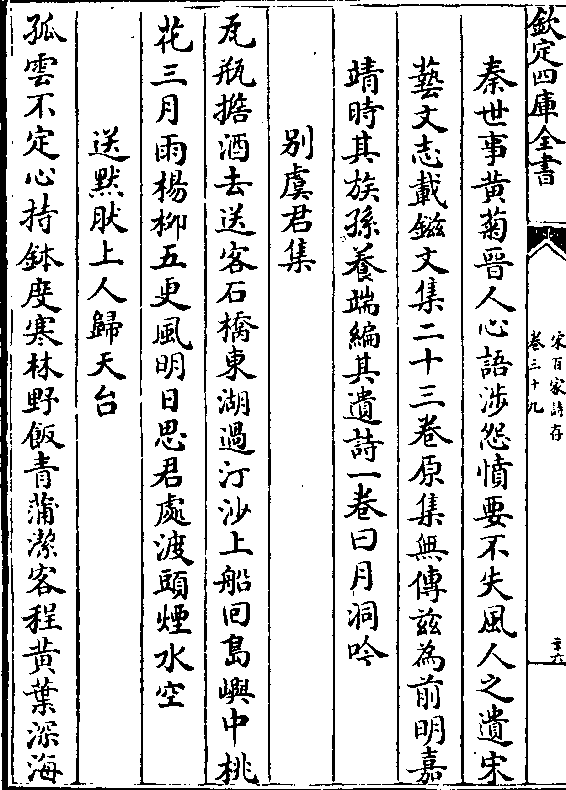 欽定四庫全書
宋百家詩存
卷三十九
二十六
秦世事黄菊晉人心語涉怨憤要不失風人之遺宋
藝文志載鎡文集二十三卷原集無傳兹為前明嘉
靖時其族孫養端編其遺詩一卷曰月洞吟
别虞君集
瓦瓶擔酒去送客石橋東湖過汀沙上船囘島嶼中桃
花三月雨楊柳五更風明日思君處渡頭煙水空
送默肰上人歸天台
孤雲不定心持鉢度寒林野飯青蒲潔客程黄葉深海